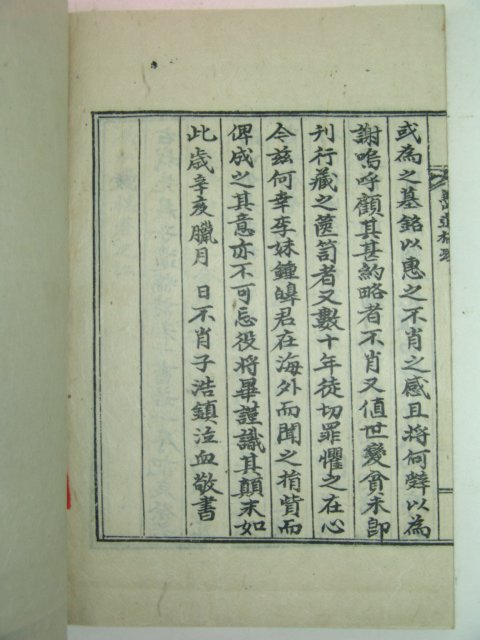 或為之墓銘以惠之不肖之感且將何辭以為
謝嗚呼顧其甚約略者不肖又值世變貧未即
刊行藏之篋笥者又數十年徒切罪懼之在心
今玆何幸李妹鍾皥君在海外而聞之捐貲而
俾成之其意亦不可忘役將畢謹識其顛末如
此歲辛亥臘月 日不肖子浩鎮泣血敬書